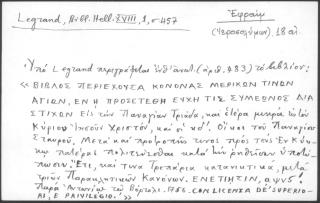 Legrand, Bibl. Hell. XVIII, 1, σ 457
Ἐφραίμ
(Ἱεροσολύμων), 18 αἰ.
Ὑπό Legrand περιγράφεται ὑπ' ἀριθ. (ἀριθ. 483) τό βιβλίον:
« ΒΙΒΛΟΣ ΠΕΡΙΕΧΟΥΣΑ ΚΟΝΟΝΑΣ ΜΕΡΙΚΩΝ ΤΙΝΩΝ
ΑΓΙΩΝ, ΕΝ Η ΠΡΟΣΕΤΕΘΗ ΕΥΧΗ ΤΙΣ ΣΥΜΕΩΝΟΣ ΔΙΑ
ΣΤΙΧΩΝ Εἰς τὴν Παναγίαν Τριάδα, καὶ ἑτέρα μικρὰ εἰς τὸν
Κύριον Ἰησοῦν Χριστόν, καὶ οἱ κδ'. Οἶκοι τοῦ Παναγίου
Σταυροῦ, Μετὰ καὶ προτροπῆς τινος πρὸς τοὺς Ἐν Κύκκῳ
πατέρας πολιτεύεσθαι κατὰ τὴν ῥηθεῖσαν ὑποτύ-
πωσιν. Ἔτι, καὶ τινα Τροπάρια κατανυκτικα, μετὰ
τριῶν Παρακλητικῶν Κανόνων. ΕΝΕΤΙΗΣΙΝ, αψνς'
Παρὰ Ἀντωνίῳ τῷ Βόρτολι. 1756. CON LICENZA DE' SUPERIO-
RI, E PRIVILEGIO. »